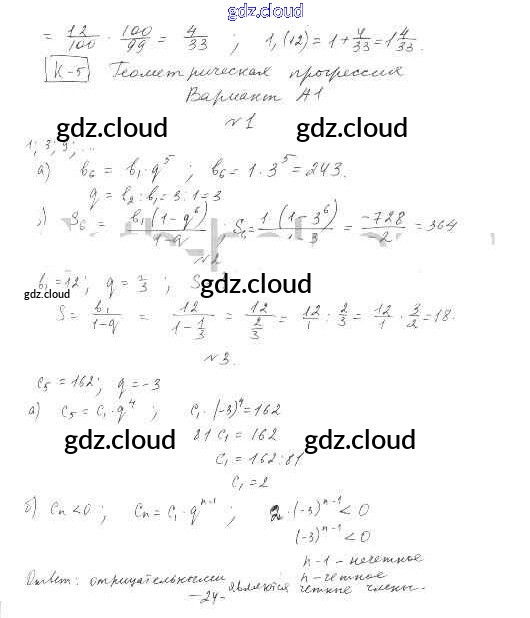 gdz.cloud
= 12/100 · 100/99 = 4/33 ; 1,(12) = 1 + 4/33 = 1 4/33.
К-5 Геометрическая прогрессия
Вариант А1
№1
gdz.cloud gdz.cloud
1; 3; 9; ...
а) b₆ = b₁·q⁵ ; b₆ = 1·3⁵ = 243.
q = b₂ : b₁ = 3 : 1 = 3
) S₆ = b₁(1-q⁶)/1-q ; S₆ = 1·(1-3⁶)/1-3 = -728/-2 = 364
№2
b₁ = 12; q = 2/3 ; S
gdz.cloud gdz.cloud
S = b₁/1-q = 12/1-1/3 = 12/2/3 = 12/1 : 2/3 = 12/1 · 3/2 = 18.
№3.
c₅ = 162; q = -3
а) c₅ = c₁·q⁴ ; c₁·(-3)⁴ = 162
81 c₁ = 162
gdz.cloud gdz.cloud
c₁ = 162 : 81
c₁ = 2
б) cₙ < 0 ; cₙ = c₁·qⁿ⁻¹ ; 2·(-3)ⁿ⁻¹ < 0
(-3)ⁿ⁻¹ < 0
n-1 - нечетное
n - четное
Ответ: отрицательными являются четные члены.
-24-